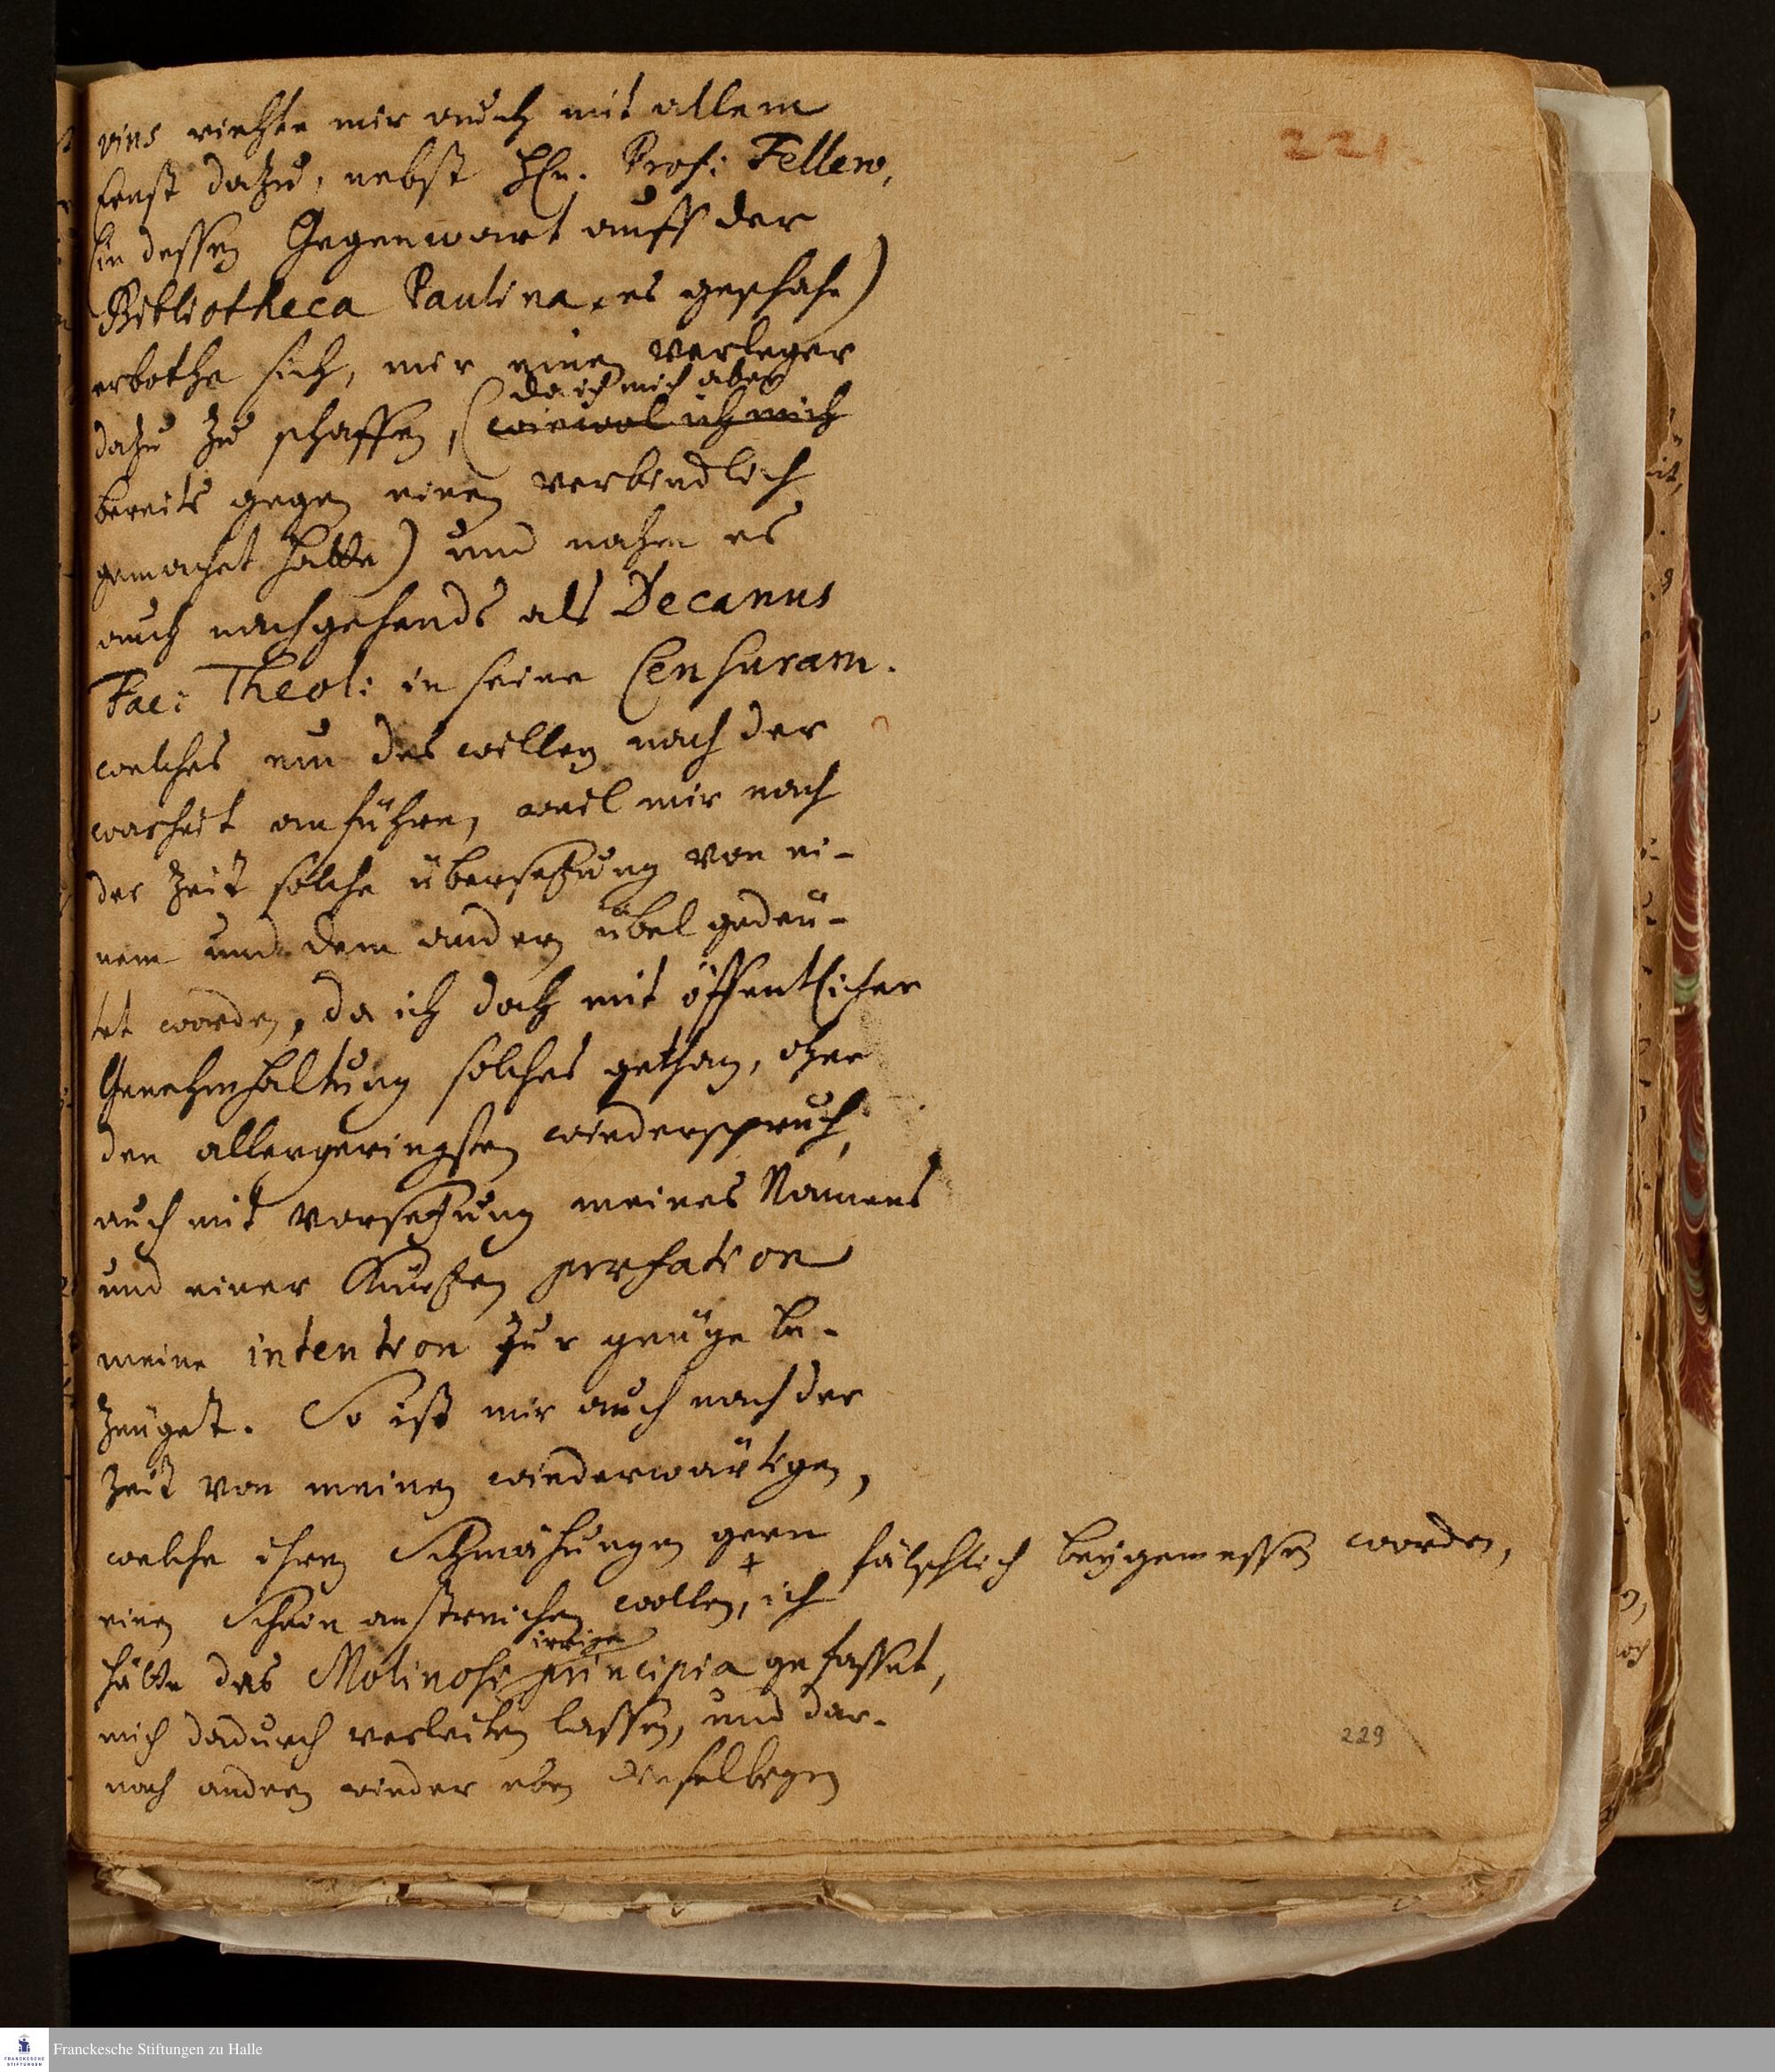 221.
vius riethe mir auch mit allem
Ernst dazu, nebst Hn. Prof: Fellero,
(in dessen Gegenwart auff der
Bibliotheca Paulina, es geschahe)
erbothe sich, mir einen Verleger
da ich mich aber
dazu zu schaffen, (wiewol ich mich
bereits gegen einen verbindlich
gemachet hatte) und nahm es
auch nachgehends als Decanus
Fac: Theol: in seine Censuram.
welches um des willen nach der
warheit anführe, weil mir nach
der Zeit solche übersetzung von ei-
nem und dem andern übel gedeu-
tet worden, da ich doch mit öffentlicher
Genehmhaltung solches gethan, ohne
den allergeringsten wiederspruch,
auch mit vorsetzung meines Namens
und einer Kurtzen præfation
meine intention zur gnüge be-
zeuget. So ist mir auch nach der
Zeit von meinen wiederwärtigen,
welche ihren Schmähungen gern
einen Schein anstreichen wollen, + ich
fälschlich beygemessen worden,
irrige
hätte des Molinosi principia gefasset,
mich dadurch verleiten lassen, und dar-
nach andern wieder eben dieselbigen
229
Franckesche Stiftungen zu Halle
FRANCKESCHE
STIFTUNGEN